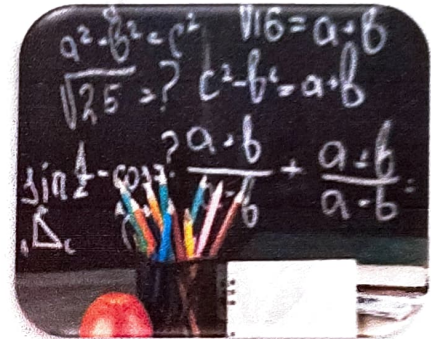 a² - b² = c² √16 = a + b
√25 = ? c² - b² = a + b
sin ½ - cos ? a + b / - b + a + b / a - b =